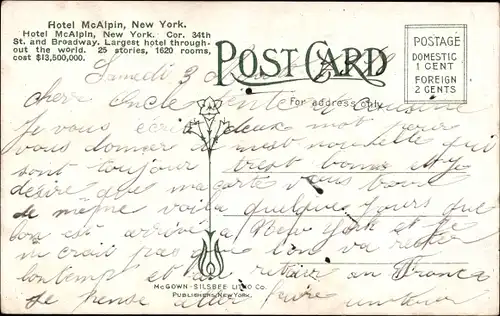 Hotel McAlpin, New York.
Hotel McAlpin, New York. Cor. 34th
St. and Broadway. Largest hotel through-
out the world. 25 stories, 1620 rooms,
cost $13,500,000.
POST CARD
For address only.
POSTAGE
DOMESTIC
1 CENT
FOREIGN
2 CENTS
Samedi 3
cher Oncle tente et cousine
Je vous écris deux mot pour
vous donner de nouvelle qui
sont toujour très bonne et je
désire que ma carte vous trouve
de même voila quelque jours que
est arrivé a New York et je
crait pas que l'on va rester
longtemp et retour en France
Je pense aller faire un tour
McGOWN-SILSBEE LITHO CO.
PUBLISHERS, NEW YORK.